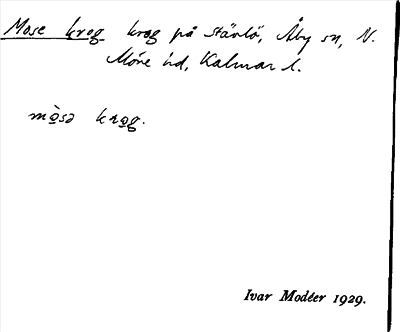 Mose krog krog på Stävlö, Åby sn, N.
Möre hd, Kalmar l.
mòsə krog.
Ivar Modéer 1929.